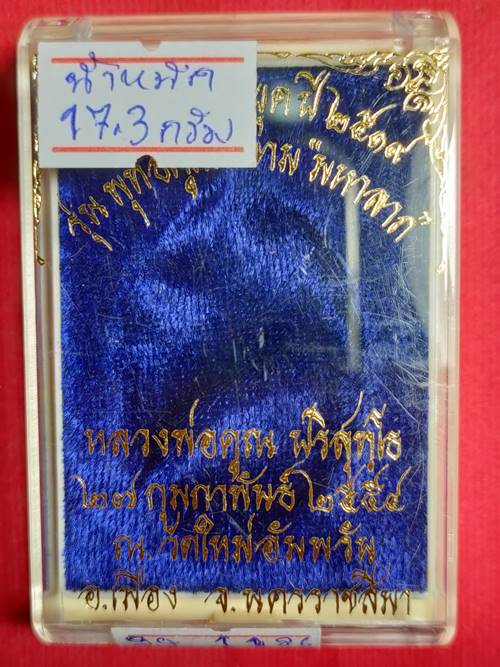 น้ำหนัก
17.3 กรัม
ปี ๒๕๑๙
รุ่น มหาลาภ
หลวงพ่อคูณ ปริสุทฺโธ
๒๗ กุมภาพันธ์ ๒๕๕๔
ณ. วัดใหม่อัมพวัน
อ.เมือง จ.นครราชสีมา